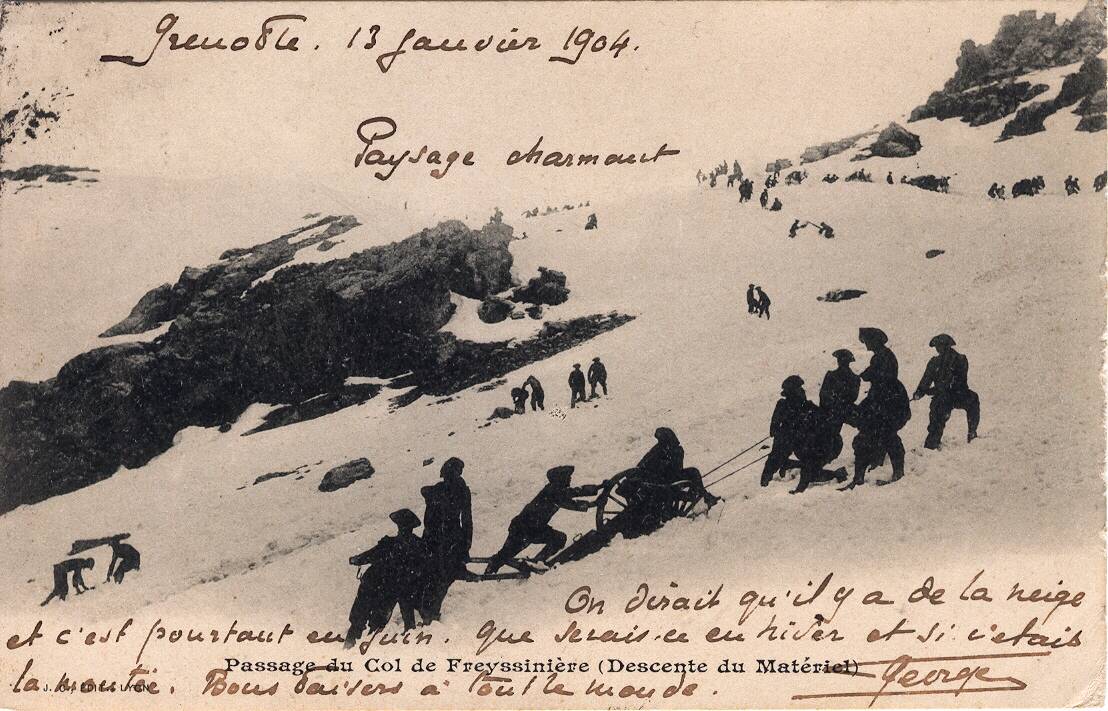 Grenoble. 13 Janvier 1904.
Paysage charmant
On dirait qu'il y a de la neige
et c'est pourtant en Juin. Que serais-ce en hiver et si c'etait
Passage du Col de Freyssinière (Descente du Matériel)
la montée. Bons baisers à tout le monde. George